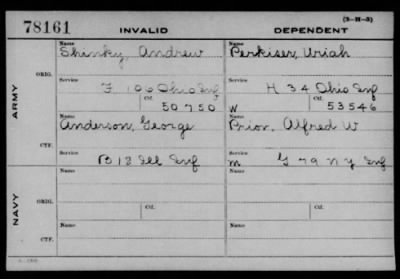 78161 INVALID DEPENDENT (3-H-3)
Name Shinky, Andrew Name Perkiser, Uriah
ORIG.
Service F 106 Ohio Inf Service H 34 Ohio Inf
Ctf. 50750 W Ctf. 53546
ARMY
Name Anderson, George Name Prior, Alfred W
CTF.
Service B 13 Ill Inf Service m G 79 N Y Inf
Name Name
ORIG.
Ctf. Ctf.
NAVY
Name Name
CTF.